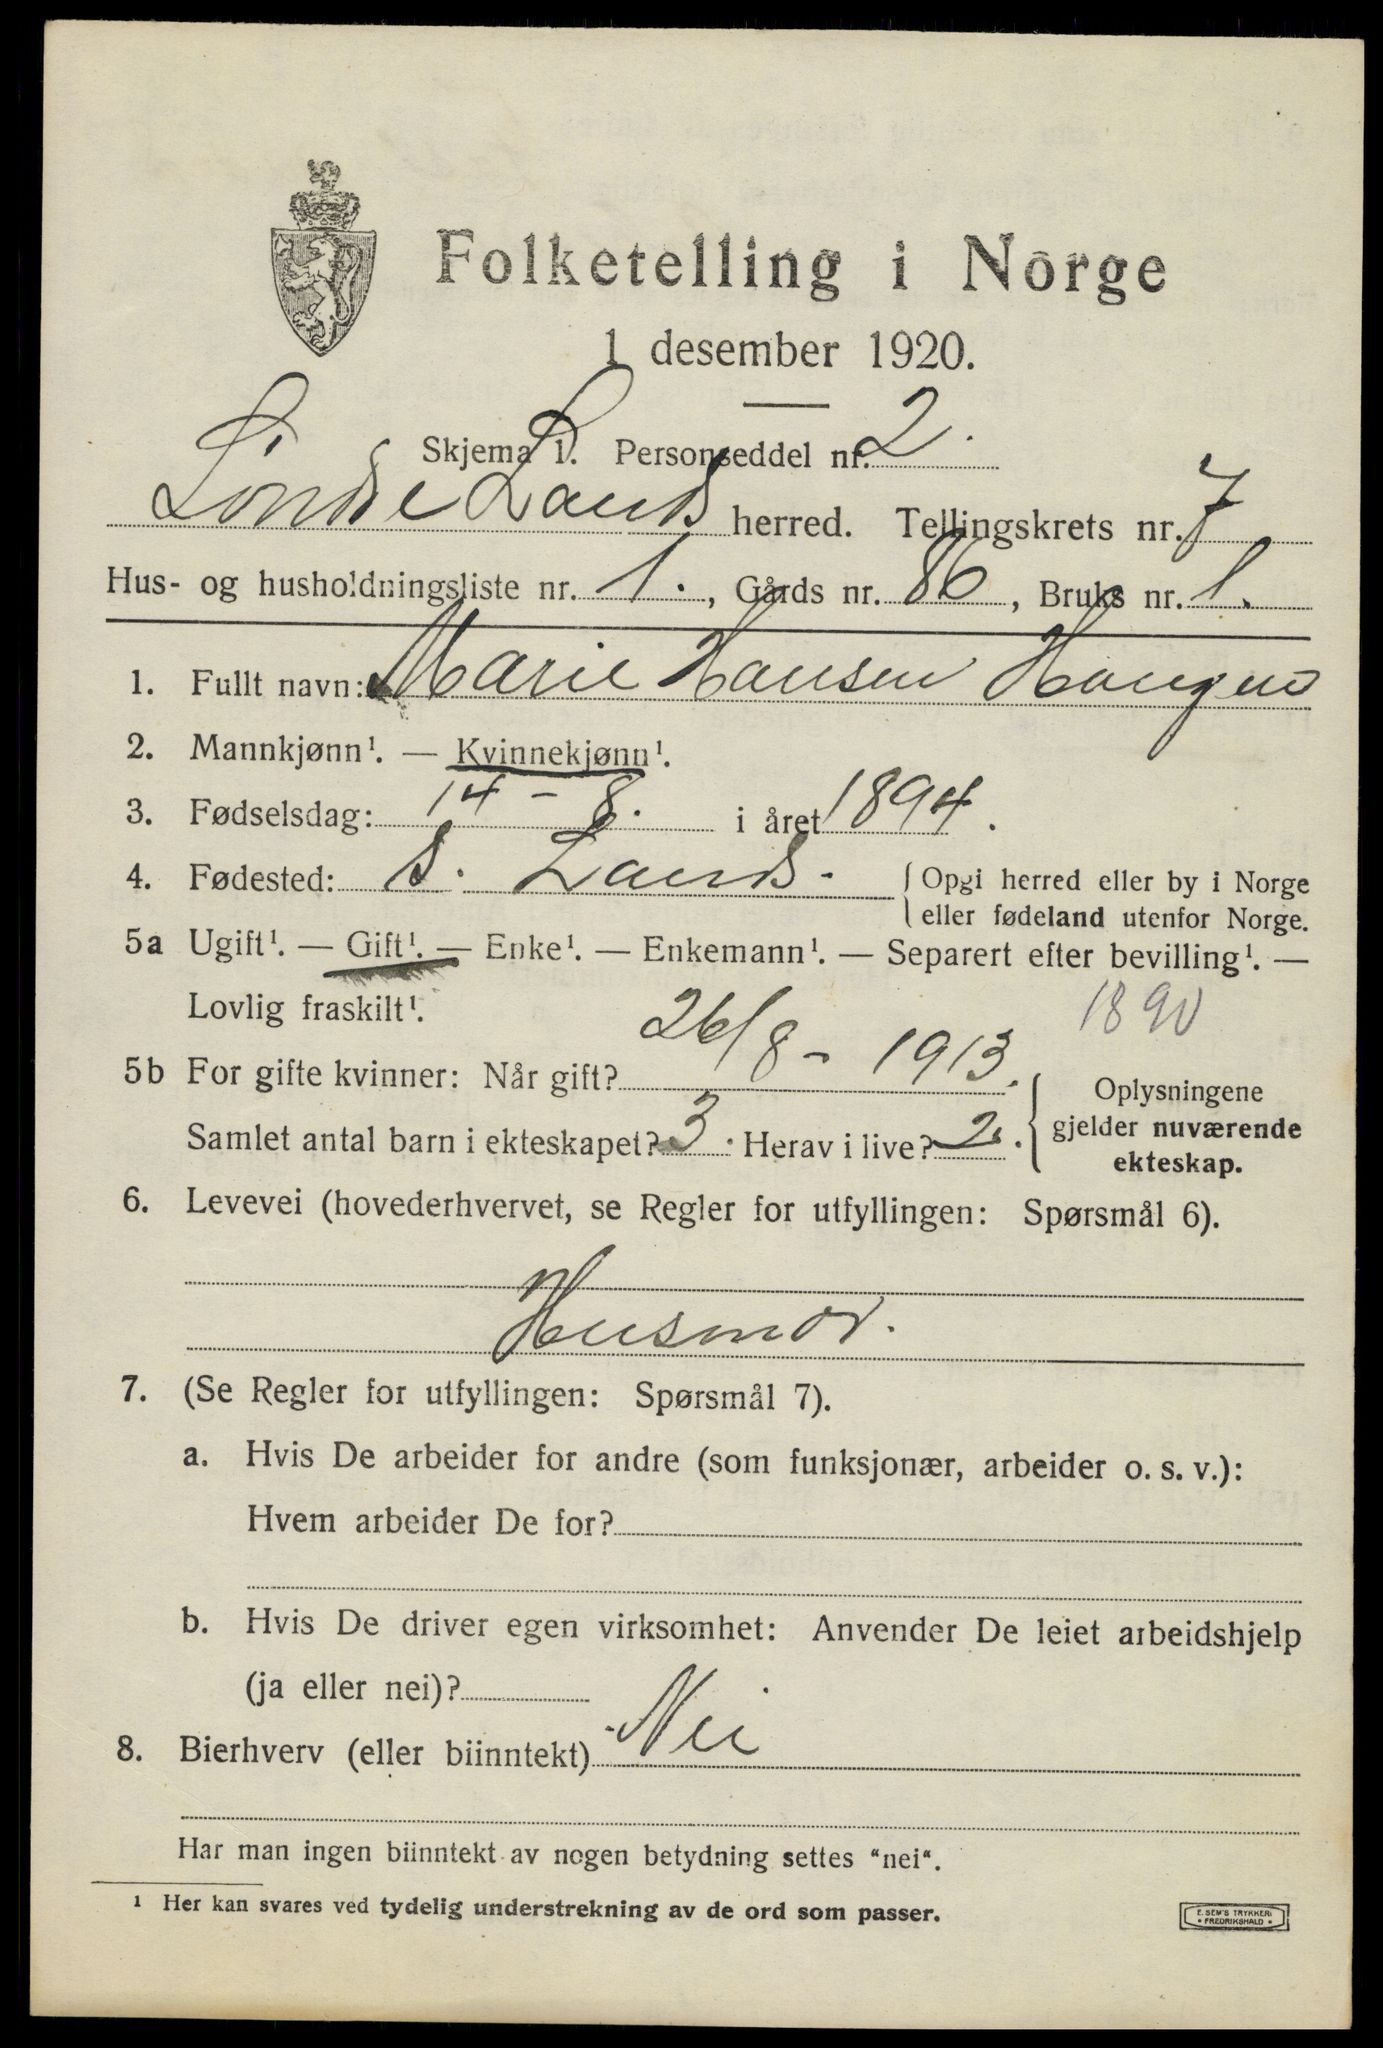 Folketelling i Norge
1 desember 1920.
Skjema 1. Personseddel nr. 2.
Søndre Lands herred. Tellingskrets nr. 7
Hus- og husholdningsliste nr. 1., Gårds nr. 86, Bruks nr. 1.
1. Fullt navn: Marie Hansen Haugen
2. Mannkjønn¹. — Kvinnekjønn¹.
3. Fødselsdag: 14 - 8. i året 1894.
4. Fødested: S. Lands. Opgi herred eller by i Norge
eller fødeland utenfor Norge.
5a Ugift¹. — Gift¹. — Enke¹. — Enkemann¹. — Separert efter bevilling¹. —
Lovlig fraskilt¹. 1890
5b For gifte kvinner: Når gift? 26/8 - 1913.
Samlet antal barn i ekteskapet? 3. Herav i live? 2.
Oplysningene
gjelder nuværende
ekteskap.
6. Levevei (hovederhvervet, se Regler for utfyllingen: Spørsmål 6).
Husmor.
7. (Se Regler for utfyllingen: Spørsmål 7).
a. Hvis De arbeider for andre (som funksjonær, arbeider o. s. v.):
Hvem arbeider De for?
b. Hvis De driver egen virksomhet: Anvender De leiet arbeidshjelp
(ja eller nei)?
8. Bierhverv (eller biinntekt) Nei
Har man ingen biinntekt av nogen betydning settes "nei".
¹ Her kan svares ved tydelig understrekning av de ord som passer.
E. SEM'S TRYKKERI
• FREDRIKSHALD •